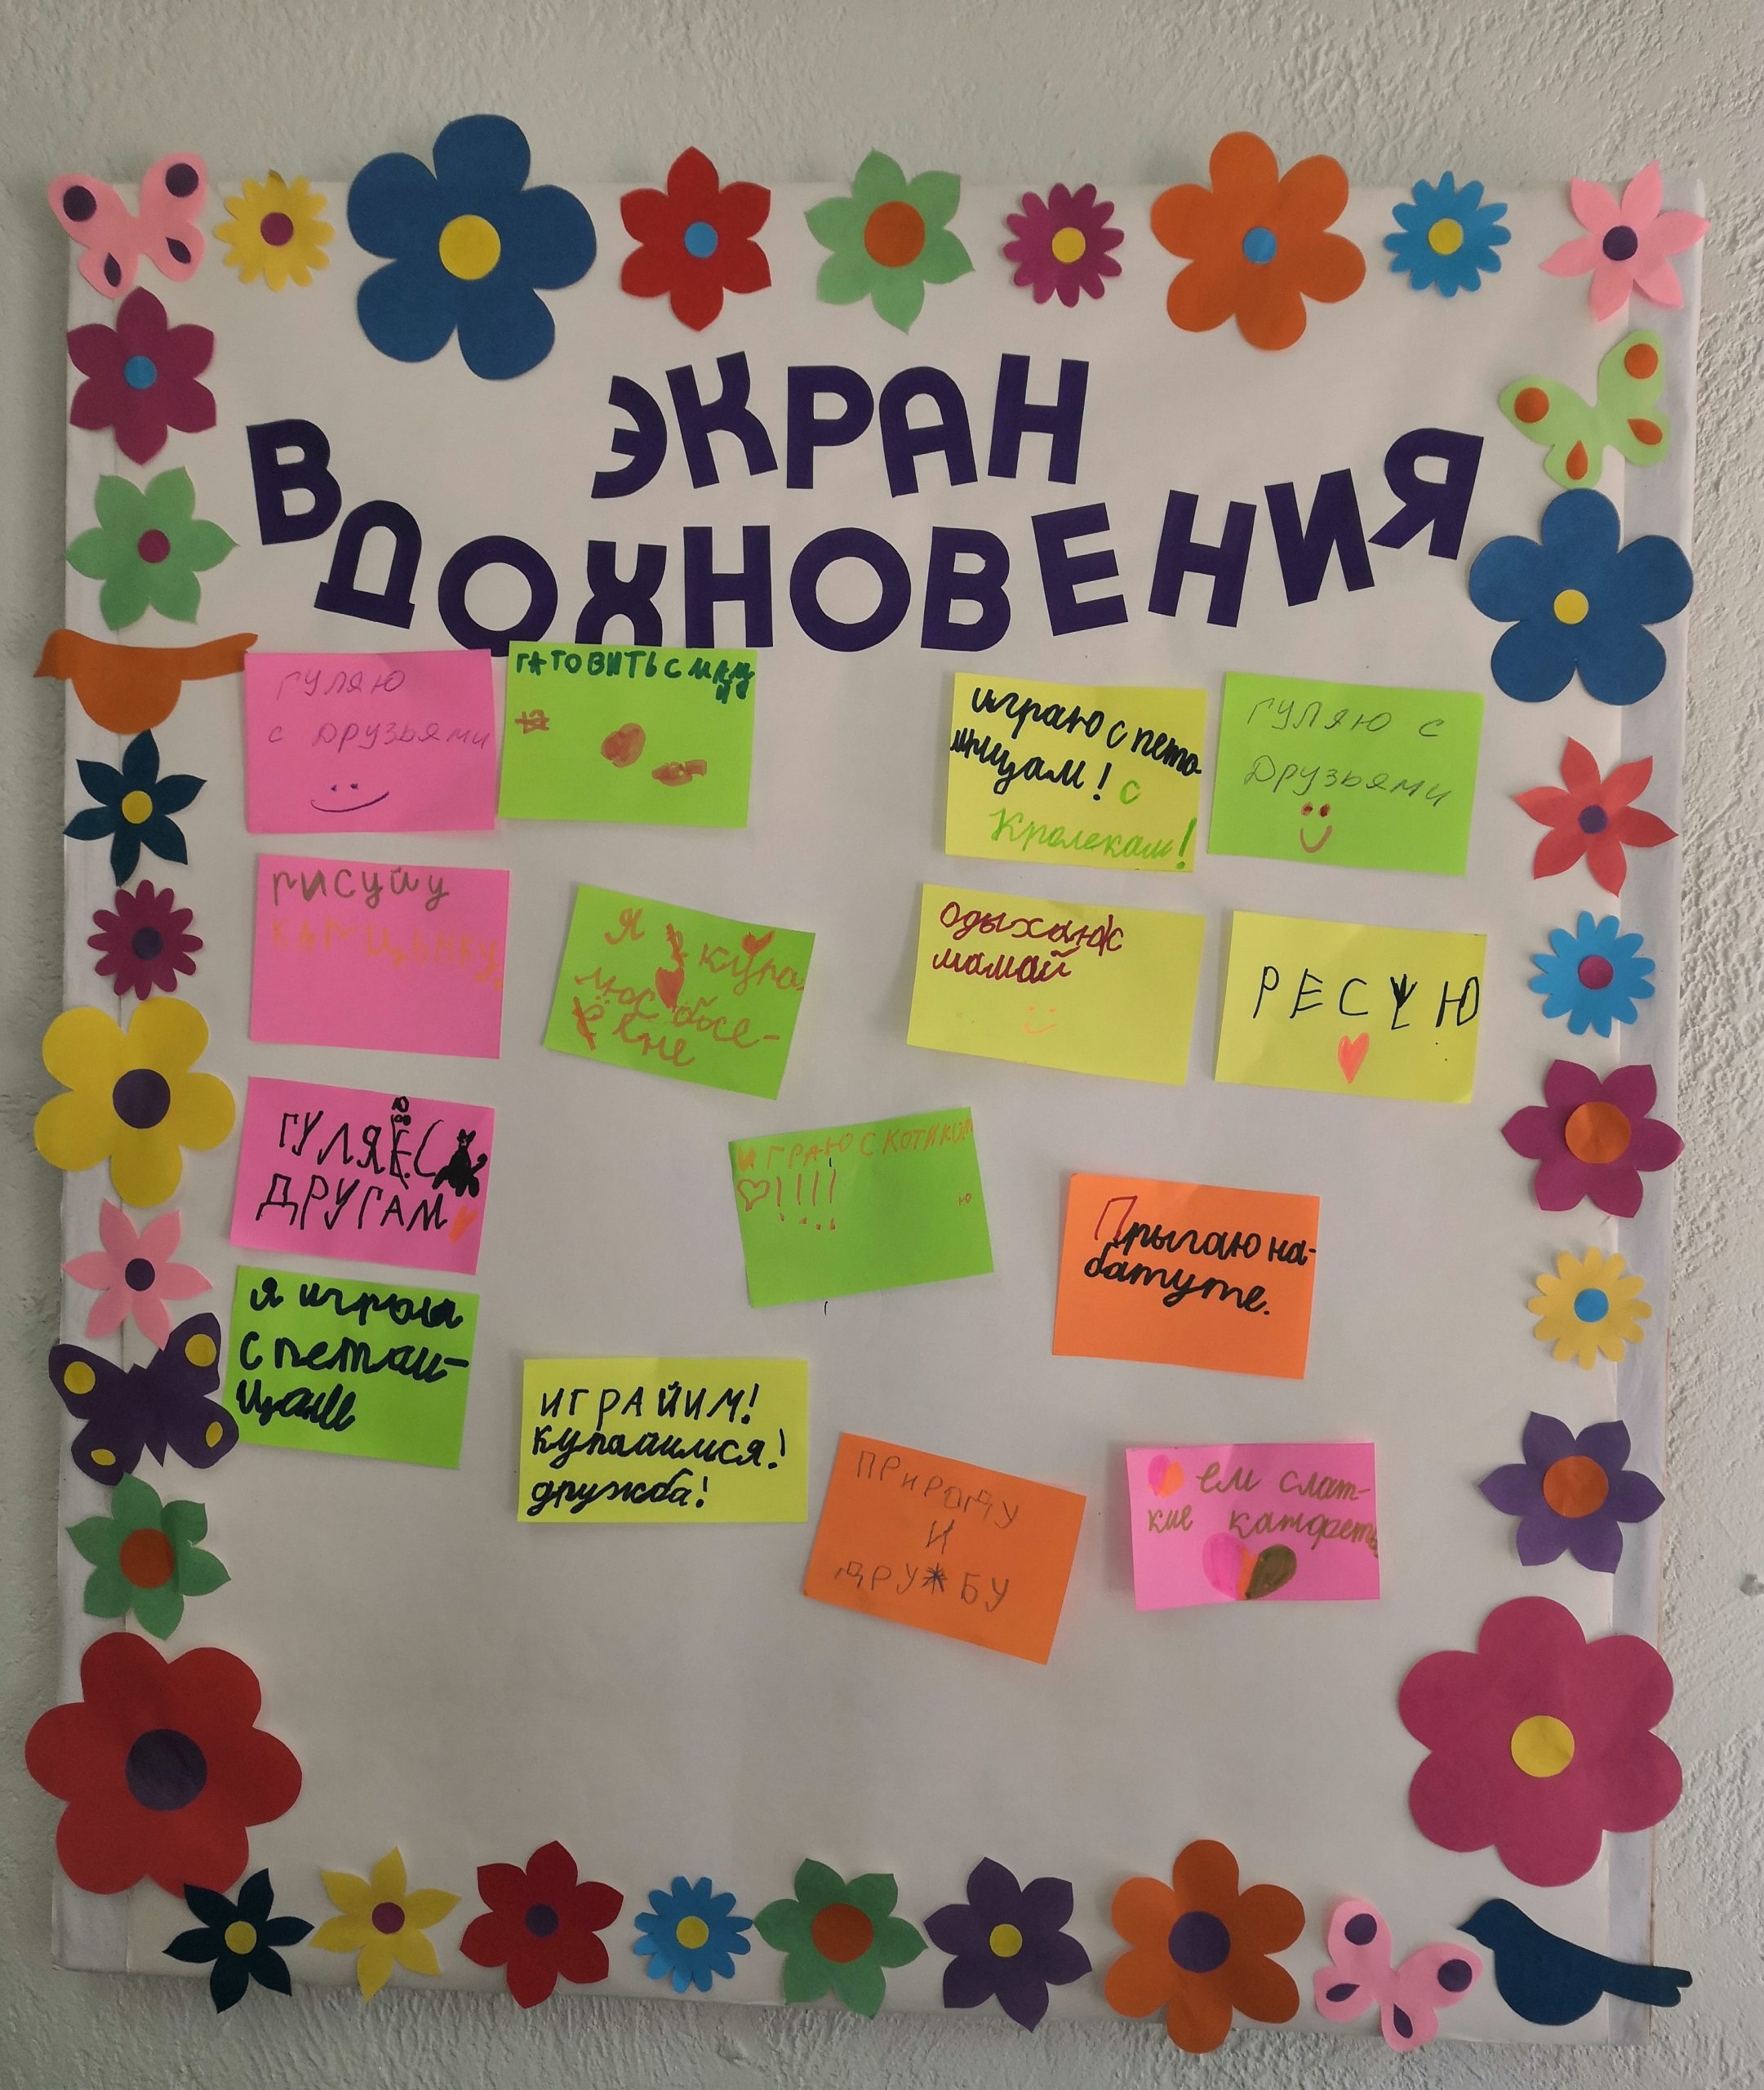 ЭКРАН
ВДОХНОВЕНИЯ
гуляю
с друзьями
ГАТОВИТЬ С МАМ
играю с пето
мицам! с
Кролекам!
гуляю с
Друзьями
рисуйу
Я купа
юс
одыхаюк
мамай
РЕСУЮ
ГУЛЯЮ С
ДРУГАМ
ИГРАЮ С КОТИКОМ
!!!!
Прыгаю на-
батуте.
я играю
с петаи-
цами
ИГРАЙИМ!
купаимся!
дружба!
ПРИРОДУ
И
ДРУЖБУ
ем слат-
кие канфеты